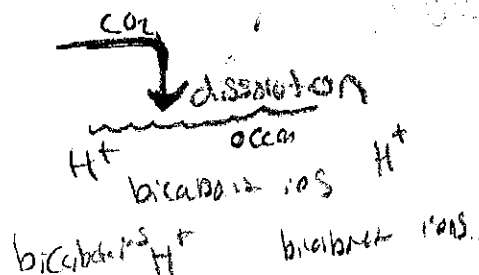 CO2
dissolution
ocean
H+ H+
bicarbonate ions
bicarbonate ions H+ bicarbonate ions